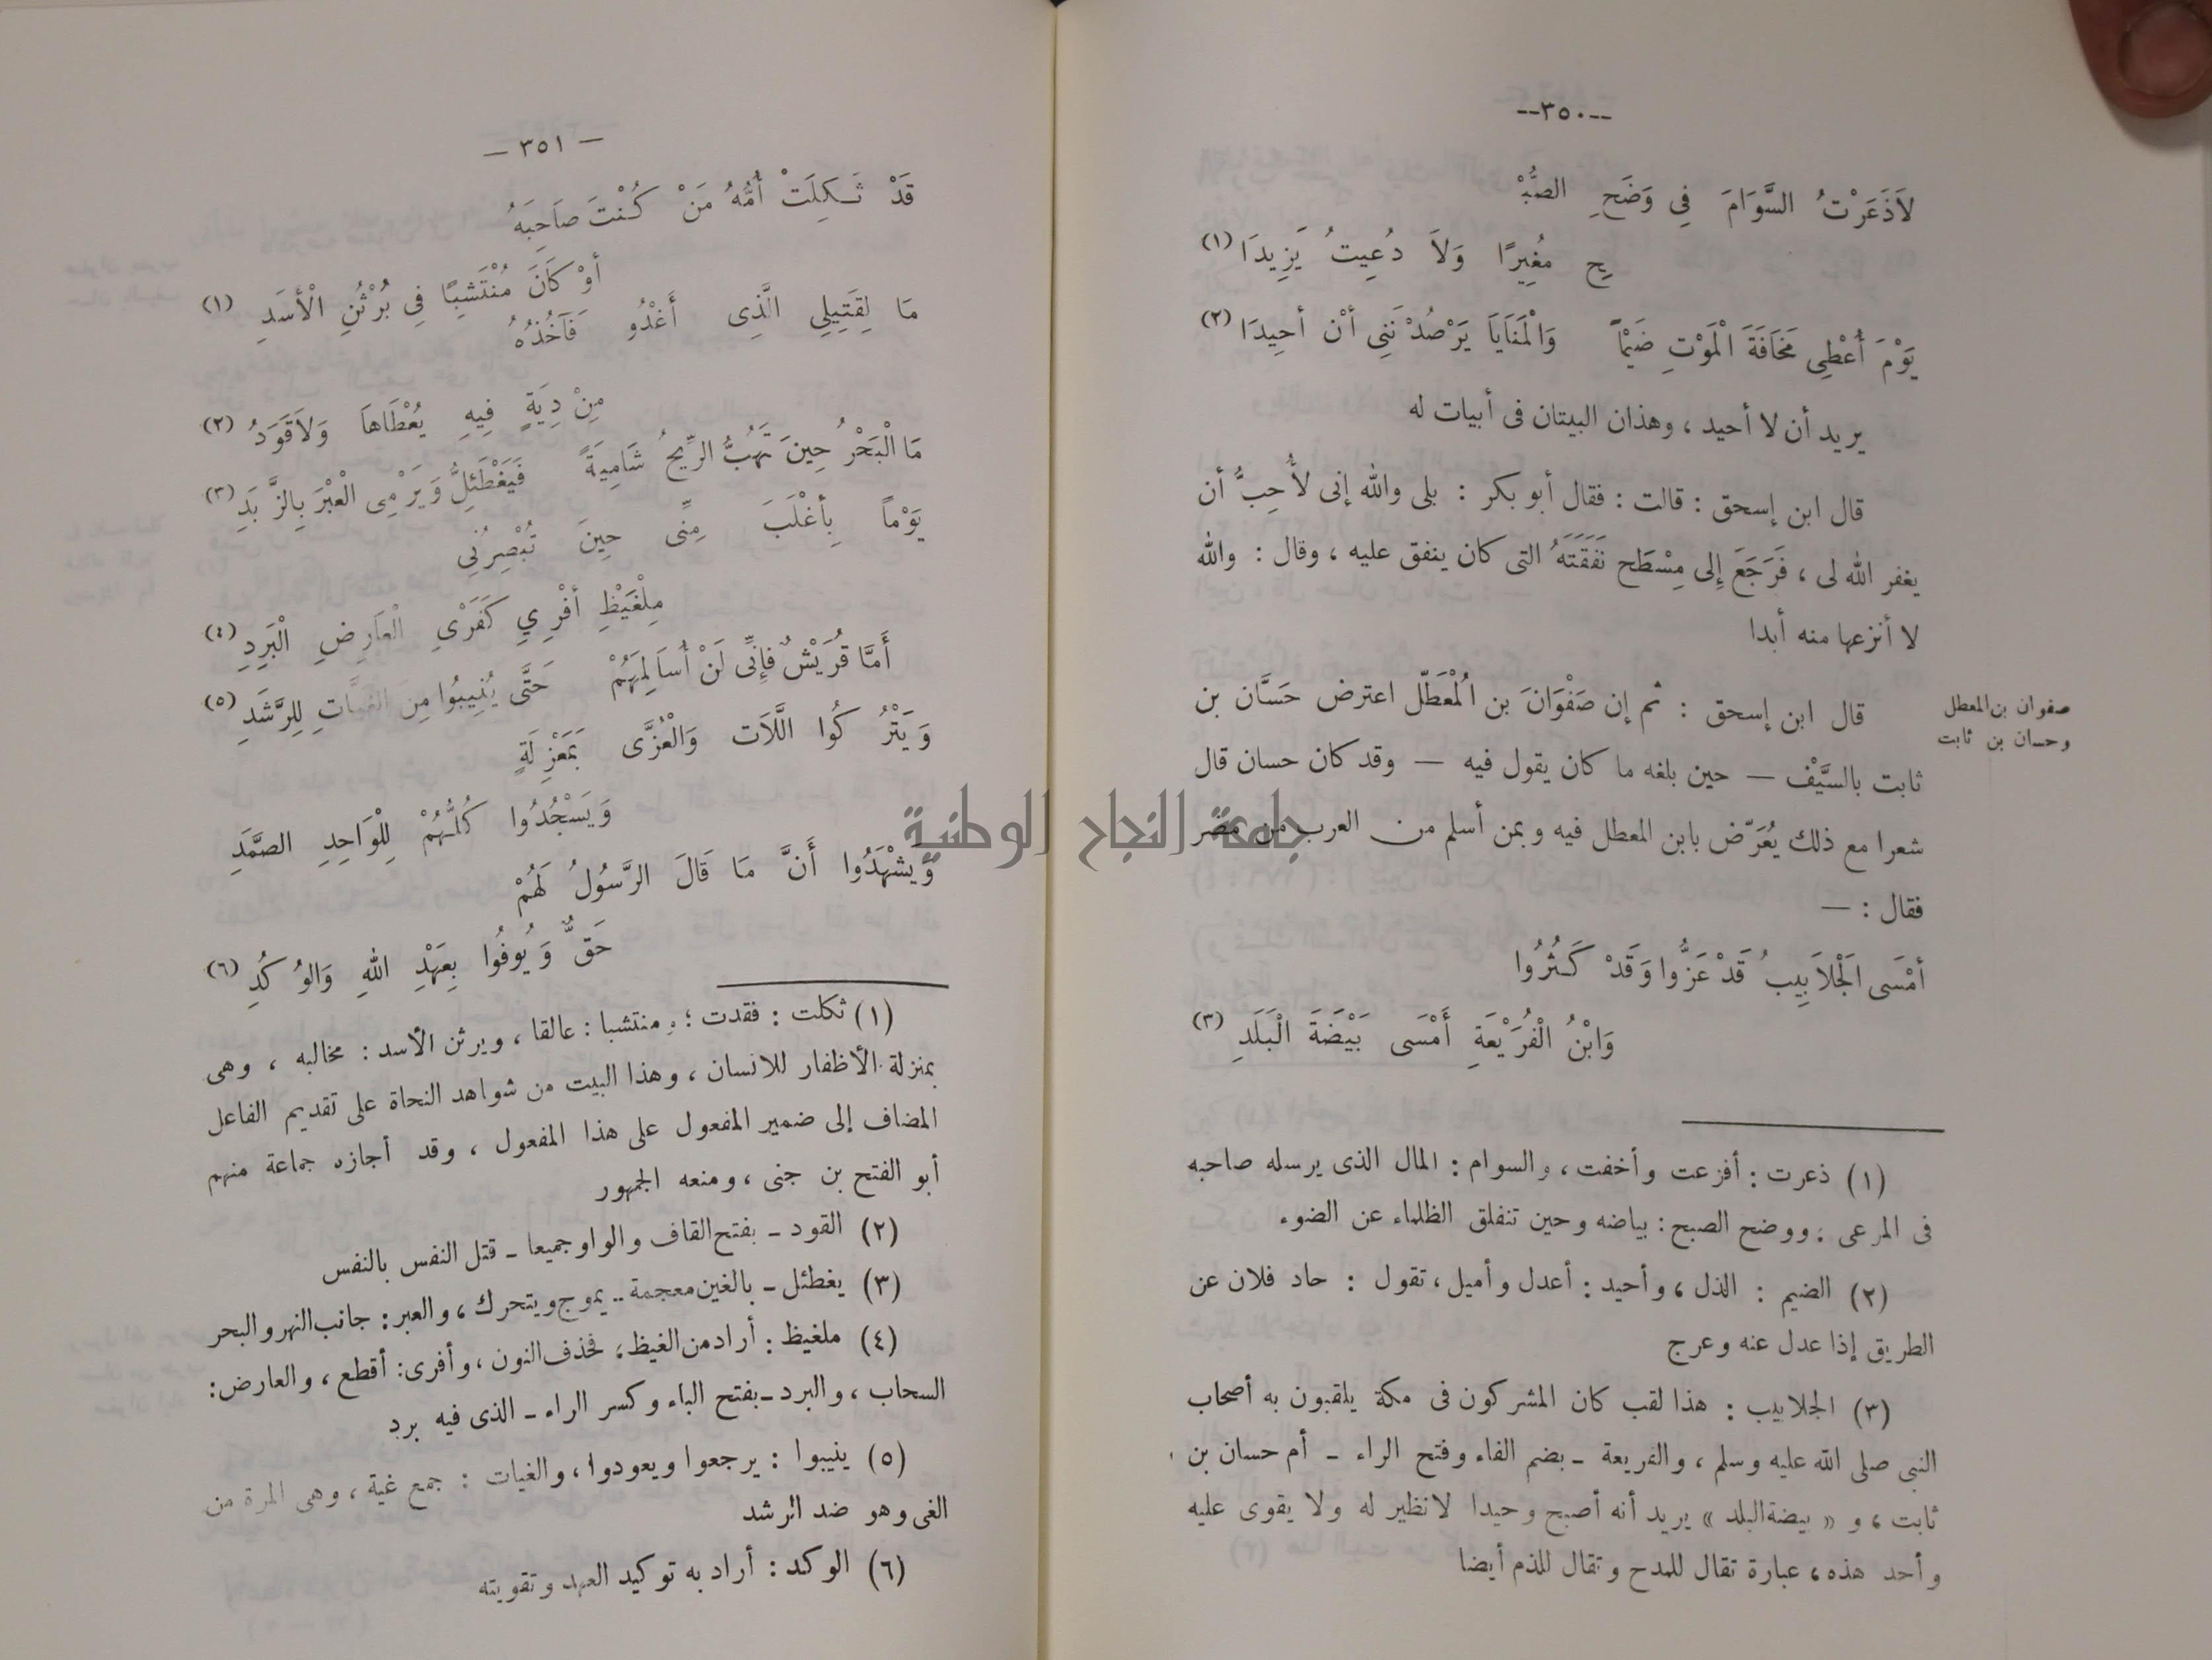 --٣٥٠--
لاَذَعَرْتُ السَّوَامَ فِي وَضَحِ الصُّبْـ
ـحِ مغِيرًا وَلاَ دُعِيتُ يَزِيدَا (١)
يَوْمَ أُعْطِي مَخَافَةَ الْمَوْتِ ضَيْمًا وَالْمَنَايَا يَرْصُدْنَنِى أَنْ أحِيدَا (٢)
يريد أن لا أحيد ، وهذان البيتان فى أبيات له
قال ابن إسحق : قالت : فقال أبو بكر : بلى والله إنى لأُحِبُّ أن
يغفر الله لى ، فَرَجَعَ إِلى مِسْطَح نَفَقَتَهُ التى كان ينفق عليه ، وقال : والله
لا أنزعها منه أبدا
صفوان بن المعطل
وحسان بن ثابت
قال ابن إسحق : ثم إن صَفْوَانَ بن الْمُعَطَّل اعترض حَسَّان بن
ثابت بالسَّيْف — حين بلغه ما كان يقول فيه — وقد كان حسان قال
شعرا مع ذلك يُعَرِّض بابن المعطل فيه وبمن أسلم من العرب من مضر
فقال : —
أمْسَى الَجْلاَبِيبُ قَدْ عَزُّوا وَقَدْ كَثُرُوا
وَابْنُ الْفُرَيْعَةِ أَمْسَى بَيْضَةَ الْبَلَدِ (٣)
(١) ذعرت : أفزعت وأخفت ، والسوام : المال الذى يرسله صاحبه
فى المرعى ; ووضح الصبح : بياضه وحين تنفلق الظلماء عن الضوء
(٢) الضيم : الذل ، وأحيد : أعدل وأميل ، تقول : حاد فلان عن
الطريق إذا عدل عنه وعرج
(٣) الجلابيب : هذا لقب كان المشركون فى مكة يلقبون به أصحاب
النبى صلى الله عليه وسلم ، والفريعة - بضم الفاء وفتح الراء - أم حسان بن
ثابت ، و « بيضة البلد » يريد أنه أصبح وحيدا لا نظير له ولا يقوى عليه
وأحد هذه ، عبارة تقال للمدح وتقال للذم أيضا
— ٣٥١ —
قَدْ ثَكِلَتْ أُمُّهُ مَنْ كُنْتَ صَاحِبَهُ
أوْ كَانَ مُنْتَشِبًا فِي بُرْثُنِ الْأسَدِ (١)
مَا لِقَتِيلِي الَّذِى أَغْدُو فَآخُذُهُ
مِنْ دِيَةٍ فِيهِ يُعْطَاهَا وَلاَقَوَدُ (٢)
مَا الْبَحْرُ حِينَ تَهُبُّ الرِّيحُ شَامِيَةً فَيَغْطَئِلُّ وَيَرْمِى الْعِبْرَ بِالزَّبَدِ (٣)
يَوْمًا بِأغْلَبَ مِنِّى حِينَ تُبْصِرُنِي
مِلْغَيْظِ أفْرِي كَفَرْيِ الْعَارِضِ الْبَرِدِ (٤)
أَمَّا قُرَيْشٌ فَإِنِّى لَنْ أُسَالِمَهُمْ حَتَّى يُنِيبُوا مِنَ الغَيَّاتِ لِلِرَّشَدِ (٥)
وَيَتْرُكُوا اللَّاَت وَالْعُزَّى بِمَعْزِلَةٍ
وَيَسْجُدُوا كُلُّهُمْ لِلْوَاحِدِ الصَّمَدِ
وَيَشْهَدُوا أَنَّ مَا قَالَ الرَّسُولُ لَهُمْ
حَقٌّ وَيُوفُوا بِعَهْدِ اللهِ وَالوُكُدِ (٦)
(١) ثكلت : فقدت ؛ ومنتشبا : عالقا ، وبرثن الأسد : مخالبه ، وهى
بمنزلة الأظفار للانسان ، وهذا البيت من شواهد النحاة على تقديم الفاعل
المضاف إلى ضمير المفعول على هذا المفعول ، وقد أجازه جماعة منهم
أبو الفتح بن جنى ، ومنعه الجمهور
(٢) القود - بفتح القاف والواو جميعا - قتل النفس بالنفس
(٣) يغطئل - بالغين معجمة - يموج ويتحرك ، والعبر : جانب النهر والبحر
(٤) ملغيظ : أراد من الغيظ ، فحذف النون ، وأفرى : أقطع ، والعارض :
السحاب ، والبرد - بفتح الباء وكسر الراء - الذى فيه برد
(٥) ينيبوا : يرجعوا ويعودوا ، والغيات : جمع غية ، وهى المرة من
الغى وهو ضد الرشد
(٦) الوكد : أراد به توكيد العهد وتقويته
جامعة النجاح الوطنية